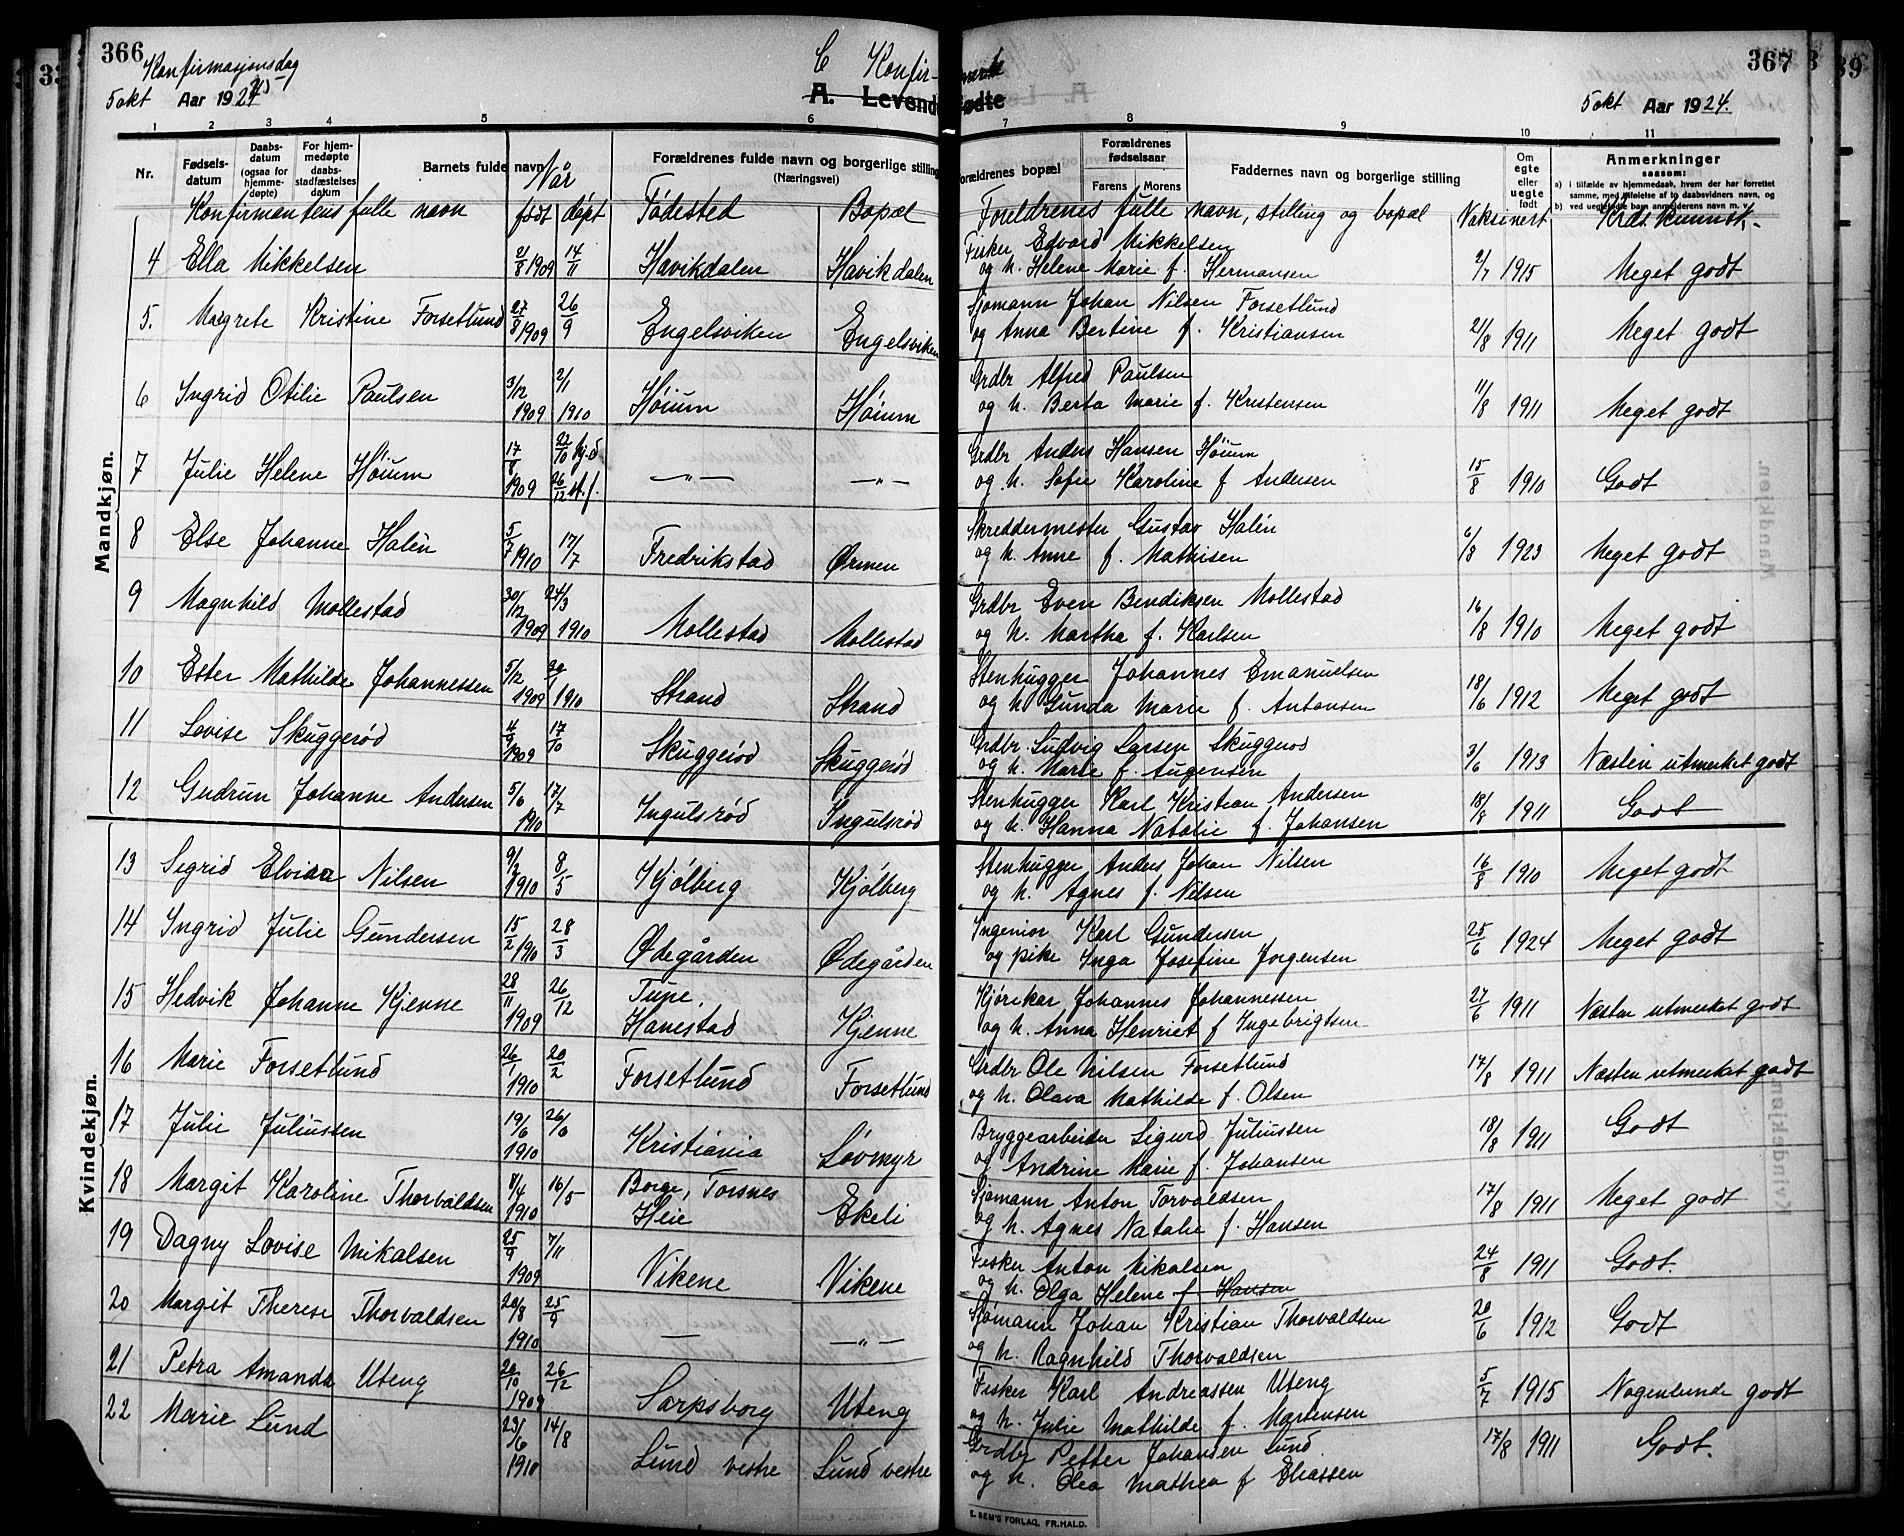 366
Konfirmasjonsdag
5 okt Aar 1924
C Konfir-
A. Levendefødte
367
5 okt Aar 1924.
1 2 3 4 5 6 7 8 9 10 11
Nr.
Fødsels-datum
Daabs-datum (ogsaa for hjemme-døpte)
For hjem-medøpte daabs-stadfæstelses datum
Barnets fulde navn
Når
Forældrenes fulde navn og borgerlige stilling (Næringsvei)
Forældrenes bopæl
Forældrenes fødselsaar
Farens Morens
Faddernes navn og borgerlige stilling
Om egte eller uegte født
Anmerkninger
saasom:
a) i tilfælde av hjemmedaab, hvem der har forrettet samme, med tilføielse af to daabsvidners navn, og
b) ved uegtefødte barn anmelderens navn m. v.
Konfirmantens fulle navn født døpt Fødested Bopæl Foreldrenes fulle navn, stilling og bopæl Vaksinert Krds. kunnsk.
Mandkjøn.
4 Ella Mikkelsen 2/8 1909 14/11 Havikdalen Havikdalen Fisker Edvard Mikkelsen
og h. Helene Marie f. Hermansen 2/7 1915 Meget godt
5. Margrete Kristine Forsetlund 27/8 1909 26/9 Engelsviken Engelsviken Sjømann Johan Nilsen Forsetlund
og Anna Bertine f. Kristiansen 21/8 1911 Meget godt
6 Ingrid Otilie Paulsen 3/12 1909 2/1 1910 Høium Høium Grdbr Alfred Paulsen
og h. Berta Marie f. Kristensen 11/8 1911 Meget godt
7 Julie Helene Høium 17/8 1909 22/10 hj.d 26/12 st.f. —"— —"— Grdbr Anders Hansen Høium
og h. Sofie Karoline f Andersen 15/8 1910 Godt
8 Else Johanne Halén 5/7 1910 17/7 Fredrikstad Ørmen Skreddermester Gustav Halén
og h. Anne f. Mathisen 6/8 1923 Meget godt
9 Magnhild Mollestad 30/12 1909 24/3 1910 Mollestad Mollestad Grdbr Even Bendiksen Mollestad
og h. Martha f. Karlsen 16/8 1910 Meget godt
10 Ester Mathilde Johannessen 5/12 1909 1910 Strand Strand Stenhugger Johannes Emanuelsen
og h Gunda Marie f. Antonsen 18/6 1912 Meget godt
11 Lovise Skuggerød 4/9 1909 17/10 Skuggerød Skuggerød Grdbr. Ludvig Larsen Skuggerød
og h. Marie f. Augensen 3/6 1913 Næsten utmerket godt
12 Gudrun Johanne Andersen 5/6 1910 17/7 Ingulsrød Ingulsrød Stenhugger Karl Kristian Andersen
og h. Hanna Natalie f. Johansen 18/8 1911 Godt
Kvindekjøn.
13 Sigrid Nilsen 9/2 1910 8/5 Kjølberg Kjølberg Stenhugger Anders Johan Nilsen
og h. Agnes f. Nilsen 16/8 1910 Meget godt
14 Ingrid Julie Gundersen 15/2 1910 28/3 Ødegården Ødegården Ingeniør Karl Gundersen
og pike Inga Josefine Jørgensen 25/6 1924 Meget godt
15 Hedvik Johanne Kjenne 28/11 1909 26/12 Tune, Hanestad Kjenne Kjørekar Johannes Johannessen
og h. Anna Henriet f Ingebrigtsen 27/6 1911 Næsten utmerket godt
16 Marie Forsetlund 26/1 1910 20/2 Forsetlund Forsetlund Grdbr Ole Nilsen Forsetlund
og h. Olava Mathilde f. Olsen 17/8 1911 Næsten utmerket godt
17 Julie Juliussen 19/6 1910 Kristiania Løvmyr Bryggearbeider Sigurd Juliussen
og Andrine Marie f. Johansen 18/8 1911 Godt
18 Margit Karoline Thorvaldsen 8/4 1910 16/5 Borge, Torsnes Heie Ekeli Sjømann Anton Torvaldsen
og h. Agnes Natalie f. Hansen 17/8 1911 Meget godt
19 Dagny Lovise Mikalsen 25/9 1909 7/11 Vikene Vikene Fisker Anton Mikalsen
og h. Olga Helene f Hansen 24/8 1911 Godt.
20 Margit Therese Thorvaldsen 20/8 1910 25/9 — —"— Sjømann Johan Kristian Thorvaldsen
og h. Ragnhild Thorvaldsen 20/6 1912 Godt
21 Petra Amanda Uteng 20/10 1909 26/12 Sarpsborg Uteng Fisker Karl Andreassen Uteng
og h. Julie Mathilde f. Martensen 5/7 1915 Nogenlunde godt
22 Marie Lund 23/6 1910 14/8 Lund vestre Lund vestre Grdbr Petter Johansen Lund
og h. Olea Mathea f Eliassen 17/8 1911 Godt.
E. SEM'S FORLAG, FR.HALD.